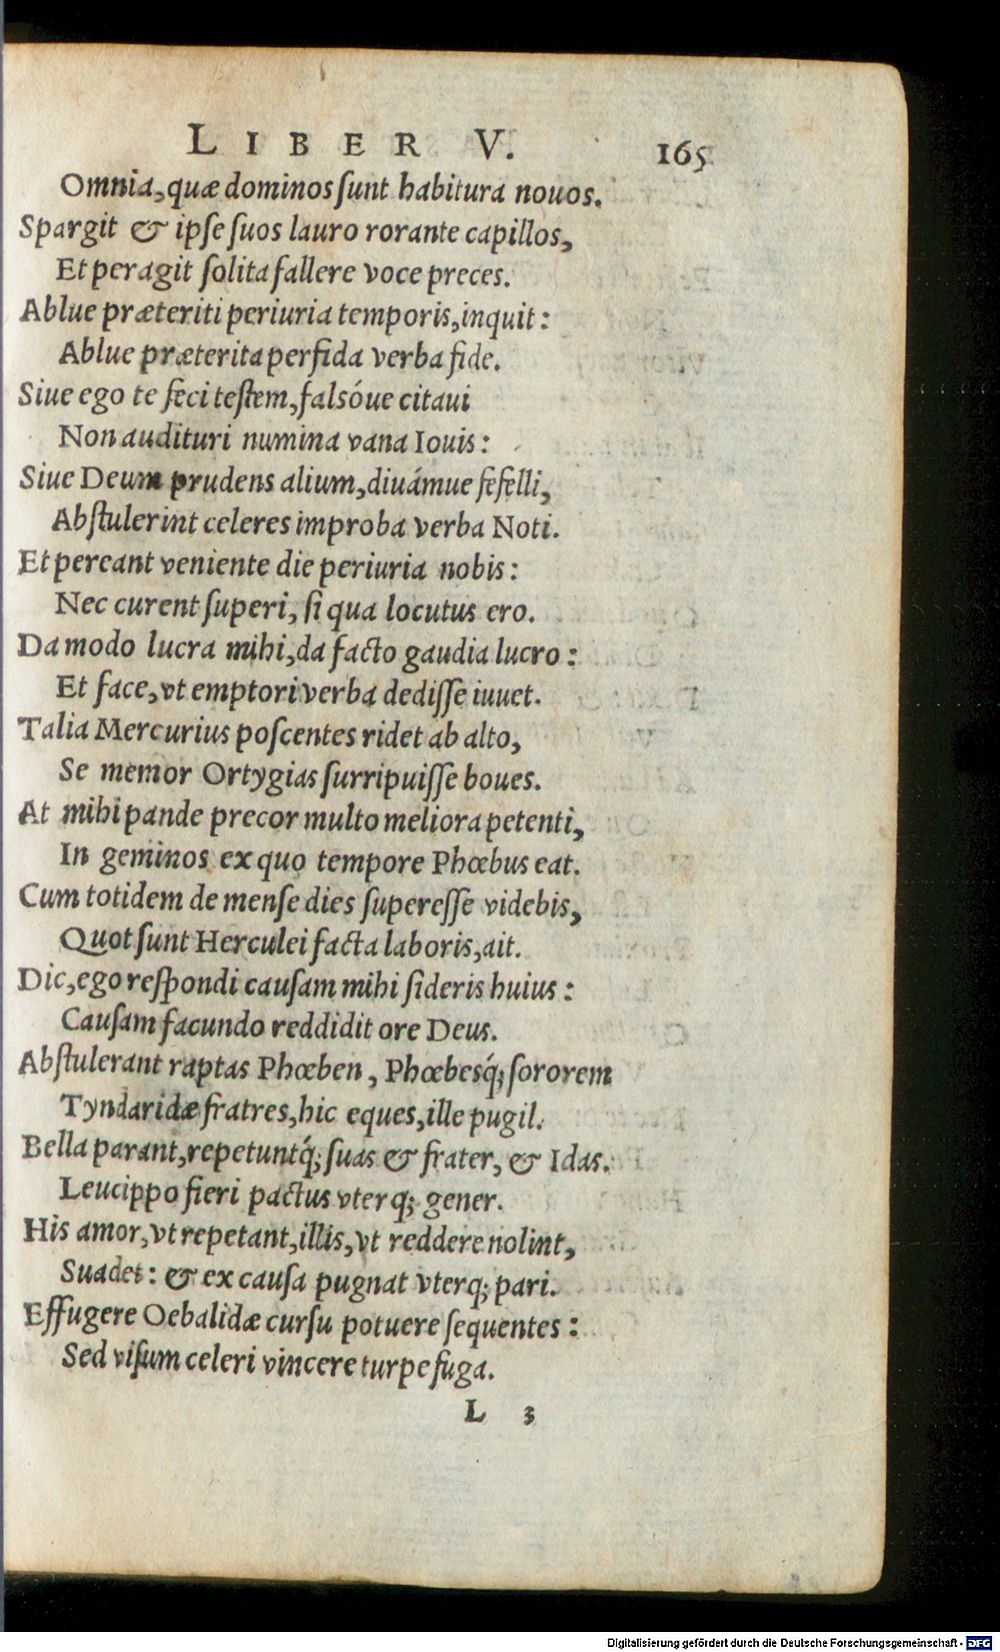 LIBER V. 165
Omnia, quæ dominos ſunt habitura nouos.
Spargit & ipſe ſuos lauro rorante capillos,
Et peragit ſolita fallere voce preces.
Ablue præteriti periuria temporis, inquit:
Ablue præterita perfida verba fide.
Siue ego te feci teſtem, falsóue citaui
Non audituri numina vana Iouis:
Siue Deum prudens alium, diuámue fefelli,
Abſtulerint celeres improba verba Noti.
Et pereant veniente die periuria nobis:
Nec curent ſuperi, ſi qua locutus ero.
Da modo lucra mihi, da facto gaudia lucro:
Et face, vt emptori verba dediſſe iuuet.
Talia Mercurius poſcentes ridet ab alto,
Se memor Ortygias ſurripuiſſe boues.
At mihi pande precor multo meliora petenti,
In geminos ex quo tempore Phœbus eat.
Cum totidem de menſe dies ſupereſſe videbis,
Quot ſunt Herculei facta laboris, ait.
Dic, ego reſpondi cauſam mihi ſideris huius:
Cauſam facundo reddidit ore Deus.
Abſtulerant raptas Phœben, Phœbesq́; ſororem
Tyndaridæ fratres, hic eques, ille pugil.
Bella parant, repetuntq́; ſuas & frater, & Idas.
Leucippo fieri pactus vterq; gener.
His amor, vt repetant, illis, vt reddere nolint,
Suadet: & ex cauſa pugnat vterq; pari.
Effugere Oebalidæ curſu potuere ſequentes:
Sed viſum celeri vincere turpe fuga.
L 3
Digitalisierung gefördert durch die Deutsche Forschungsgemeinschaft - DFG